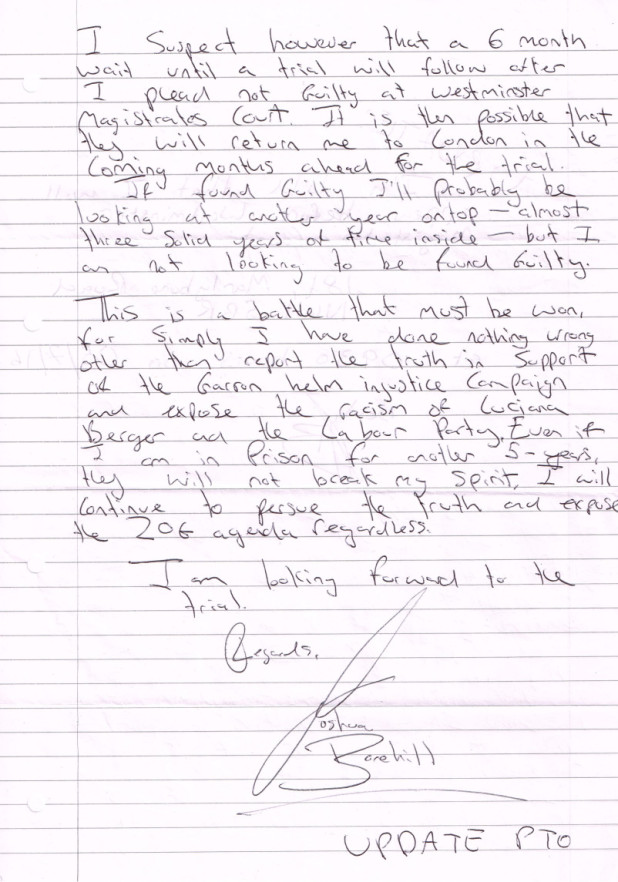 I Suspect however that a 6 month
wait until a trial will follow after
I plead not Guilty at Westminster
Magistrates Court. It is then possible that
they will return me to London in the
Coming months ahead for the trial.
If found Guilty I'll probably be
looking at another year ontop - almost
three Solid years of time inside - but I
am not looking to be found Guilty.
This is a battle that must be won,
for Simply I have done nothing wrong
other than report the truth in Support
of the Garron helm injustice Campaign
and expose the racism of Luciana
Berger and the Labour Party. Even if
I am in Prison for another 5-years,
they will not break my Spirit. I will
Continue to persue the truth and expose
the ZOG agenda regardless.
I am looking forward to the
trial.
Regards,
Joshua
Bonehill
UPDATE PTO